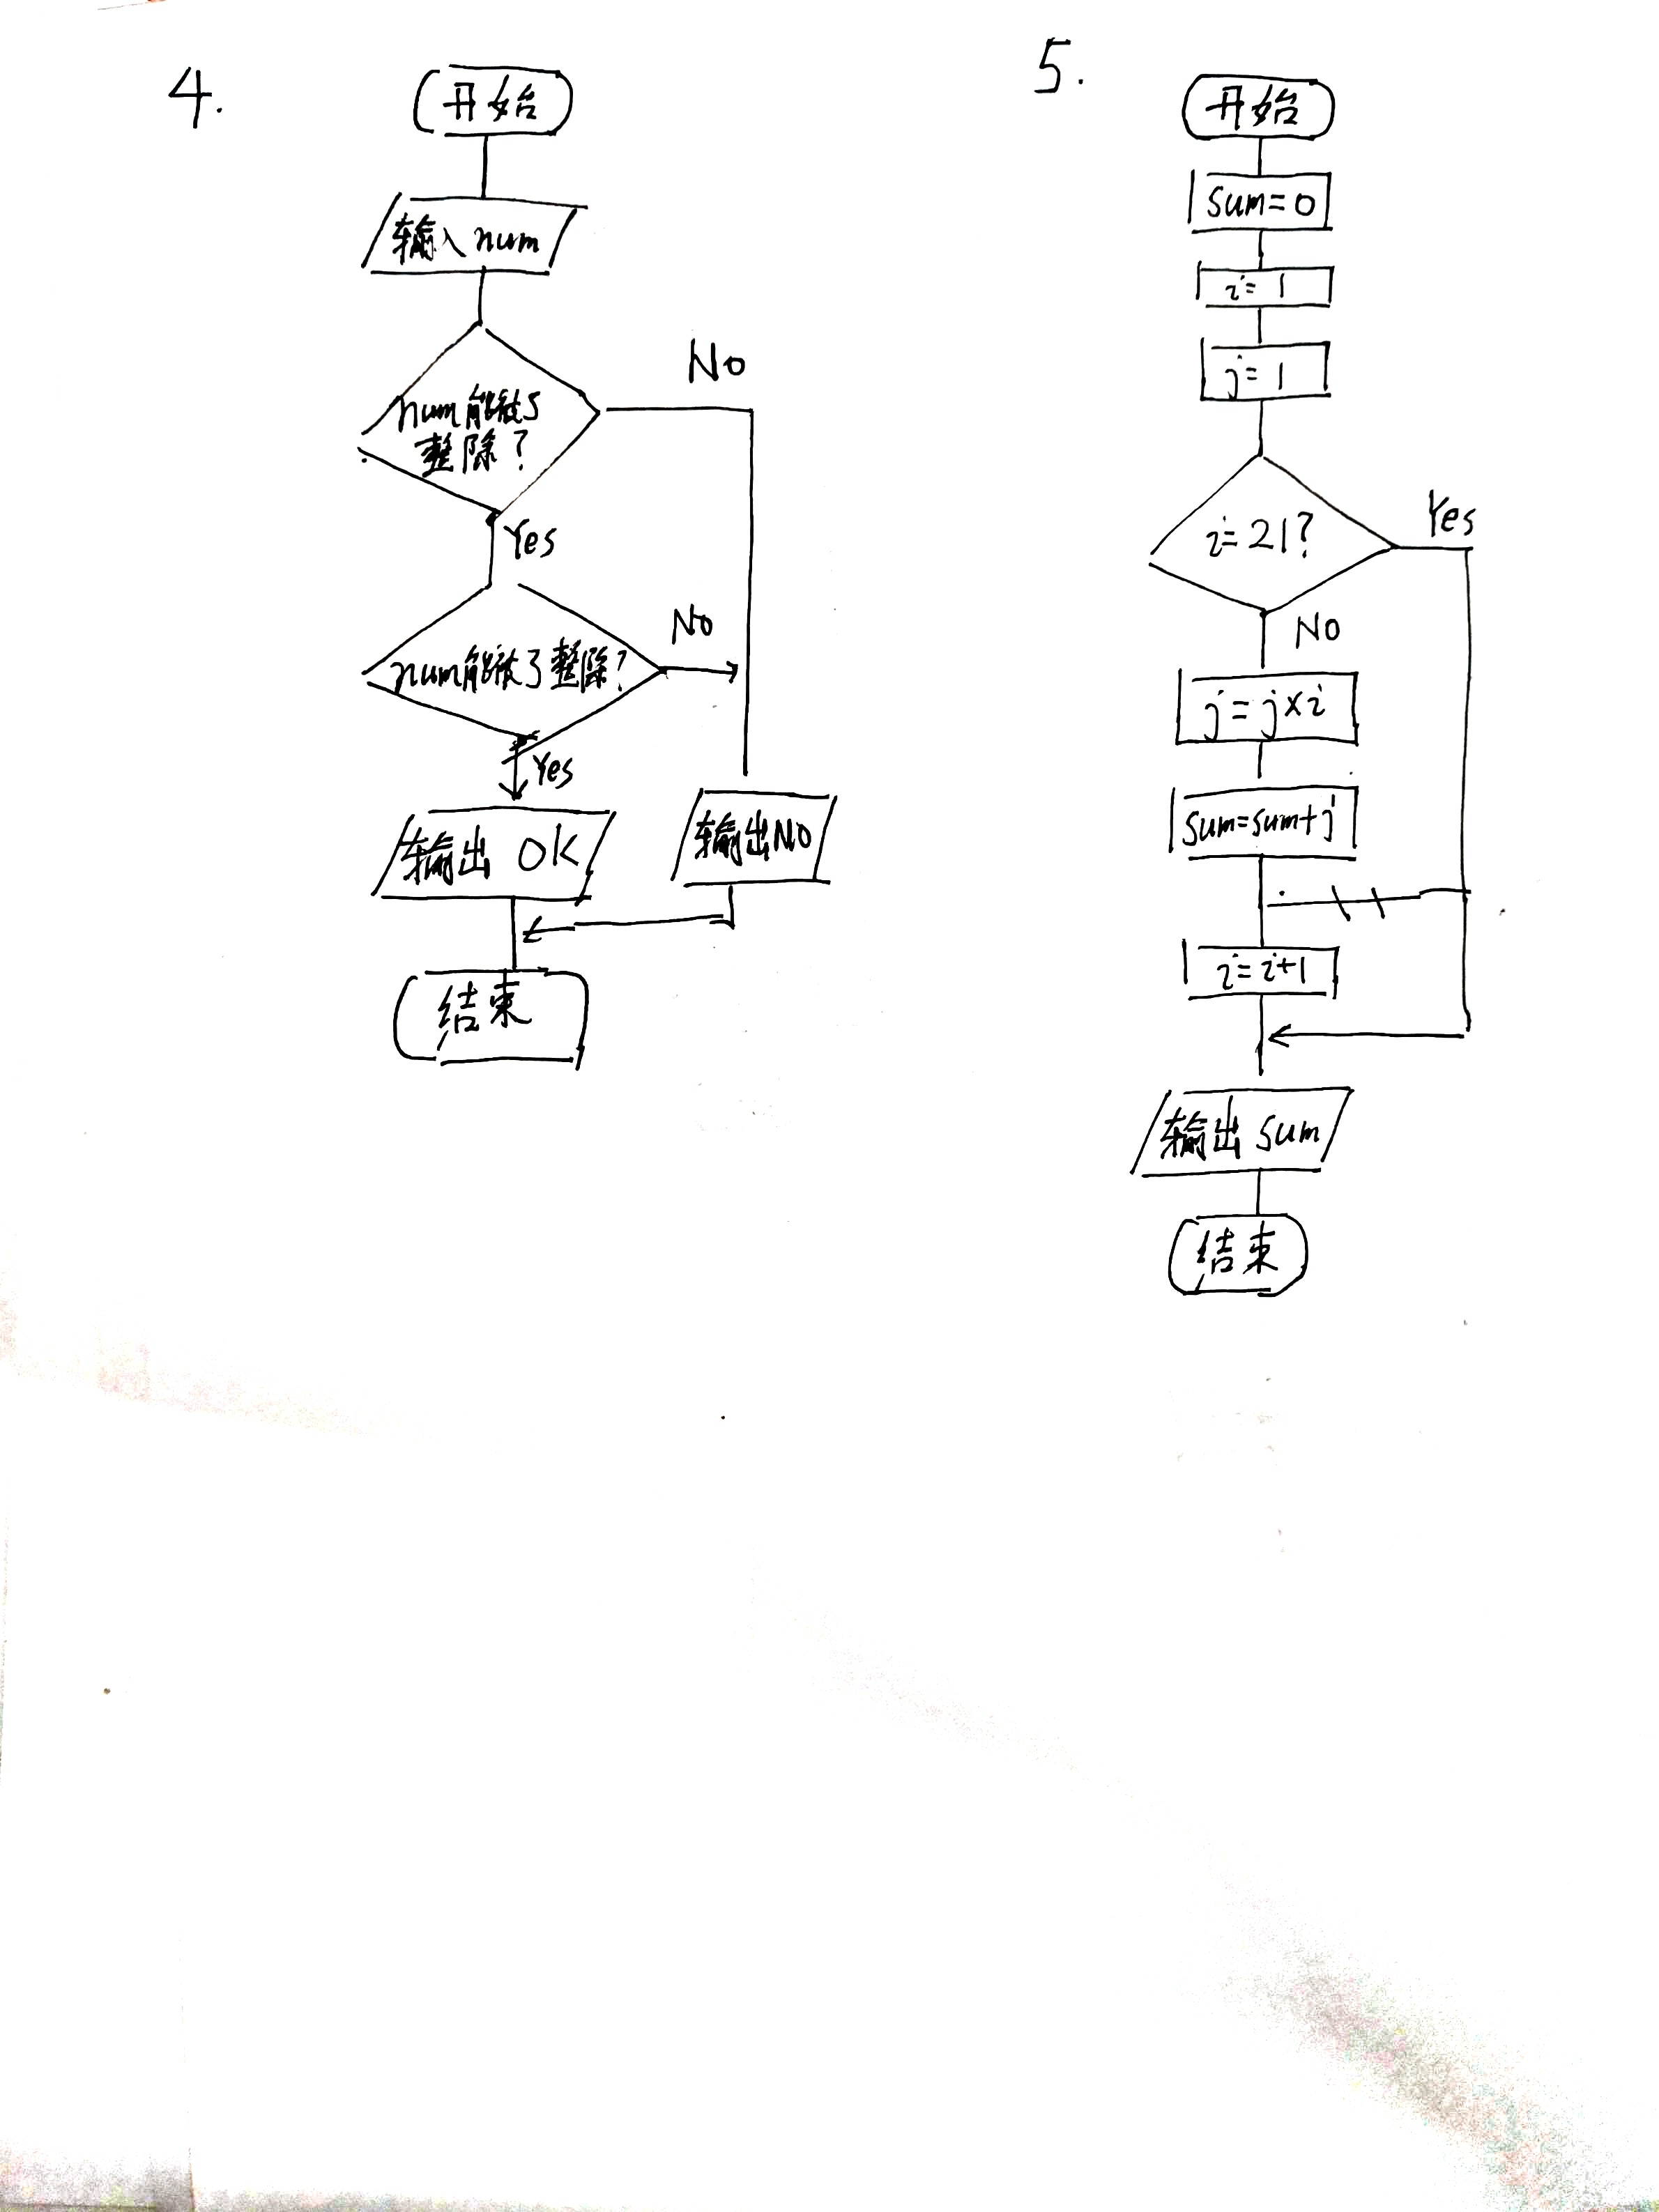 4.
开始
输入num
num能被5
整除?
No
Yes
num能被3整除?
No
Yes
输出 OK
输出NO
结束
5.
开始
sum=0
i=1
j=1
i=21?
Yes
NO
j=j×i
sum=sum+j
i=i+1
输出 sum
结束